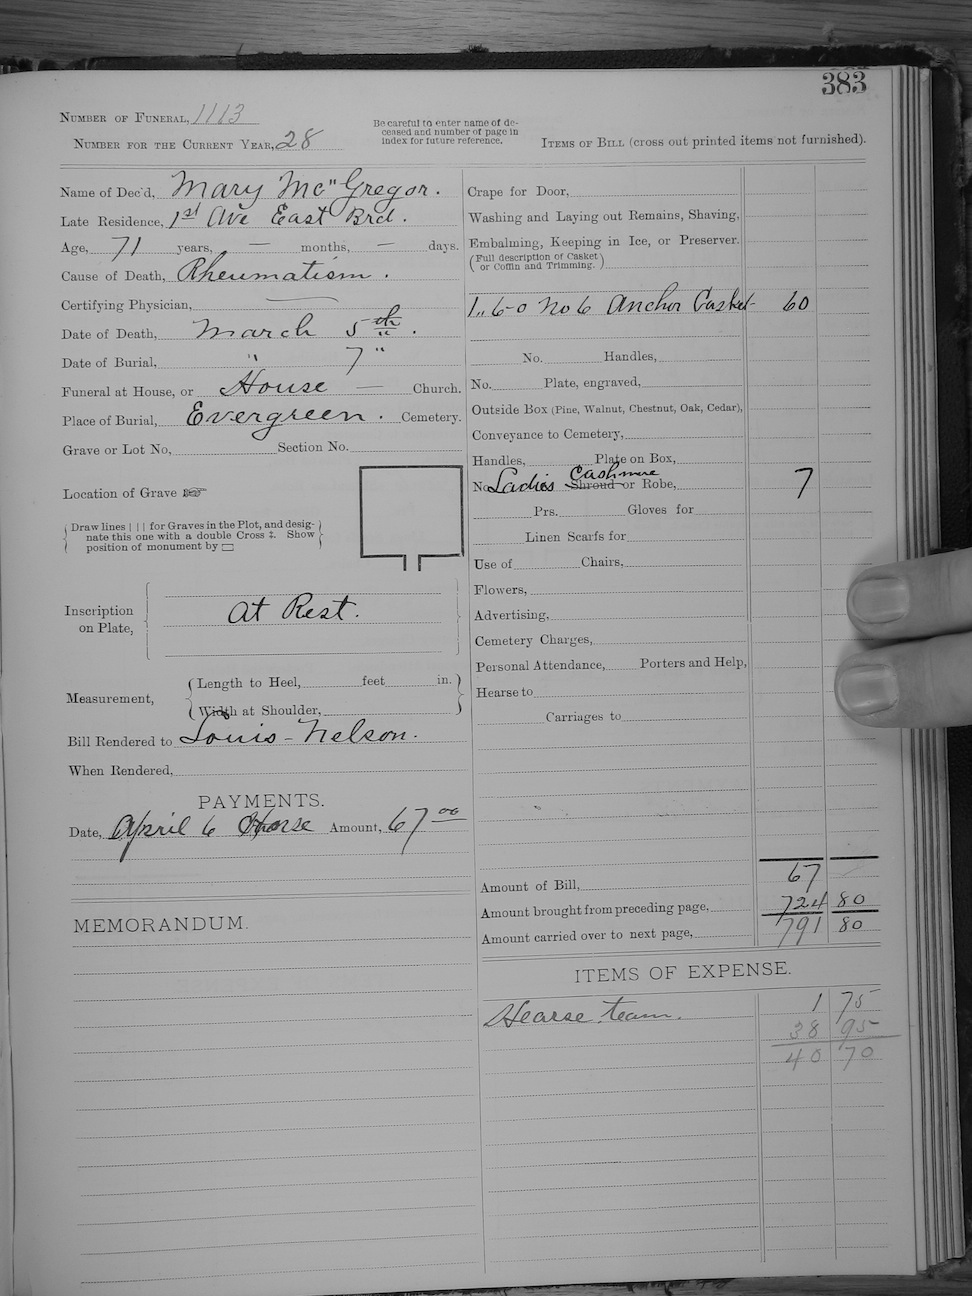 383
Number of Funeral, 1113
Number for the Current Year, 28
Be careful to enter name of de-
ceased and number of page in
index for future reference.
Items of Bill (cross out printed items not furnished).
Name of Dec'd, Mary Mc"Gregor.
Late Residence, 1st Ave East Brd.
Age, 71 years, — months, — days.
Cause of Death, Rheumatism.
Certifying Physician, —
Date of Death, March 5th.
Date of Burial, " 7"
Funeral at House, or House — Church.
Place of Burial, Evergreen. Cemetery.
Grave or Lot No, Section No.
Location of Grave ☞
Draw lines | | | for Graves in the Plot, and desig-
nate this one with a double Cross ‡. Show
position of monument by ▭
Inscription
on Plate,
At Rest.
Measurement,
Length to Heel, feet in.
Width at Shoulder,
Bill Rendered to Louis Nelson.
When Rendered,
PAYMENTS.
Date, April 6 Horse Amount, 67 00
MEMORANDUM.
Crape for Door,
Washing and Laying out Remains, Shaving,
Embalming, Keeping in Ice, or Preserver.
(Full description of Casket
or Coffin and Trimming.)
1,, 6-0 No 6 Anchor Casket 60
No. Handles,
No. Plate, engraved,
Outside Box (Pine, Walnut, Chestnut, Oak, Cedar),
Conveyance to Cemetery,
Handles, Plate on Box,
Cashmere
No Ladies Shroud or Robe, 7
Prs. Gloves for
Linen Scarfs for
Use of Chairs,
Flowers,
Advertising,
Cemetery Charges,
Personal Attendance, Porters and Help,
Hearse to
Carriages to
Amount of Bill, 67
Amount brought from preceding page, 724 80
Amount carried over to next page, 791 80
ITEMS OF EXPENSE.
Hearse team. 1 75
38 95
40 70